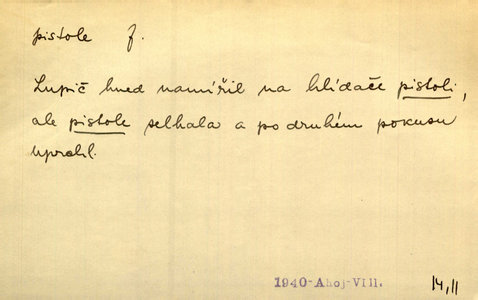 pistole f.
Lupič hned namířil na hlídače pistoli,
ale pistole selhala a po druhém pokusu
uprchl.
1940-Ahoj-VIII.
14,11